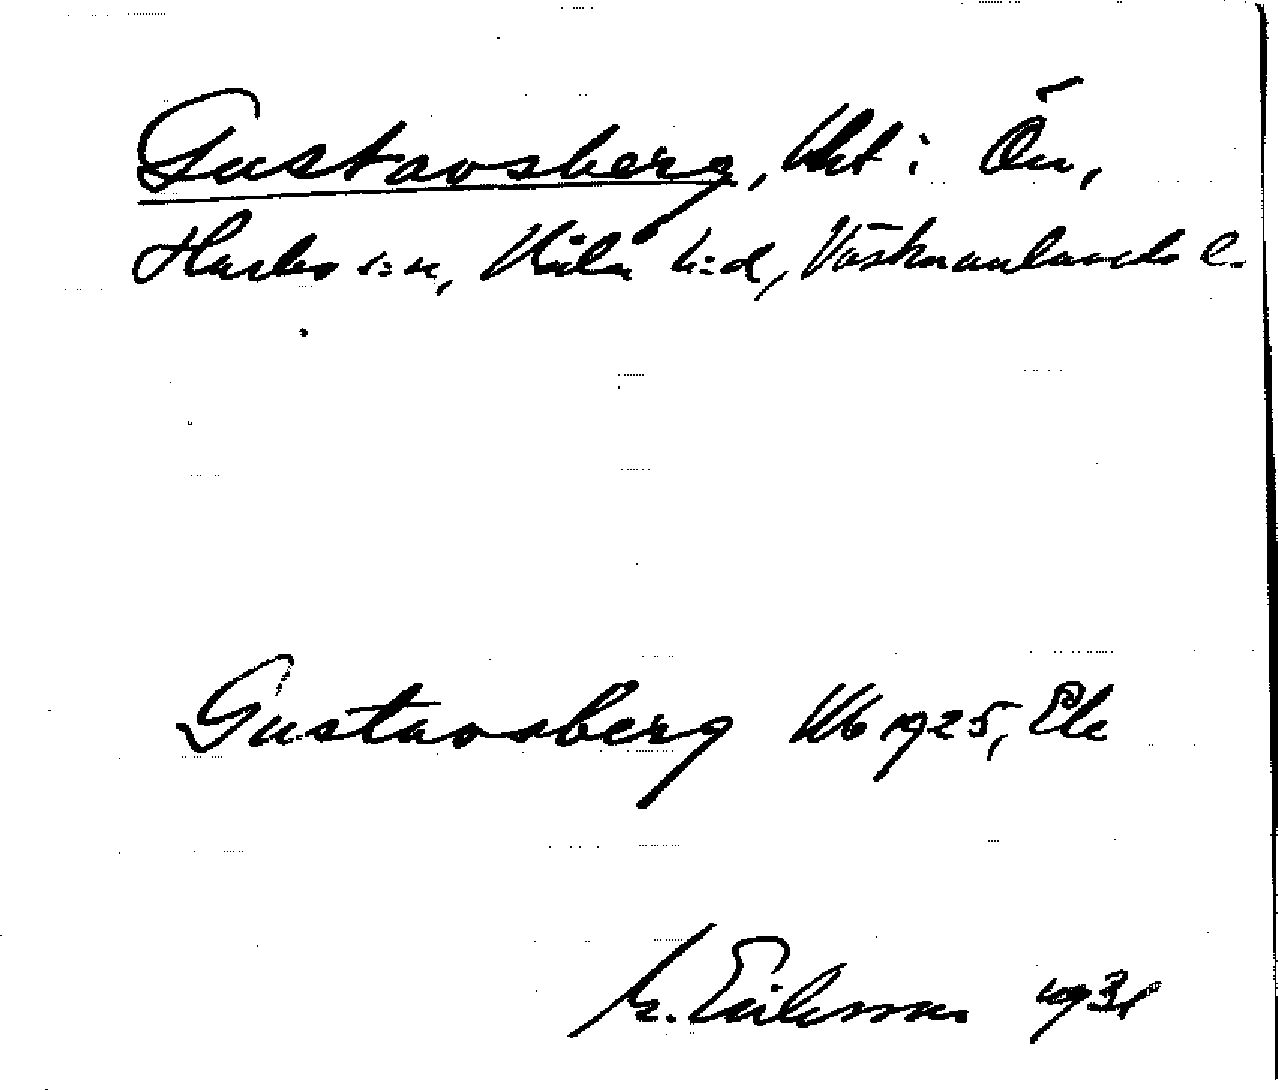 Gustavsberg, Uht i Ön,
Harbo s:n, Våla h:d, Västmanlands l.
Gustavsberg Kb 1925, Ek
M. Eriksson 1931